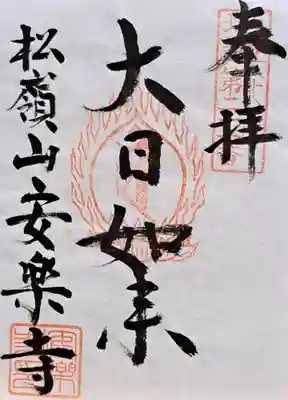 奉拝
大日如来
松嶺山安樂寺